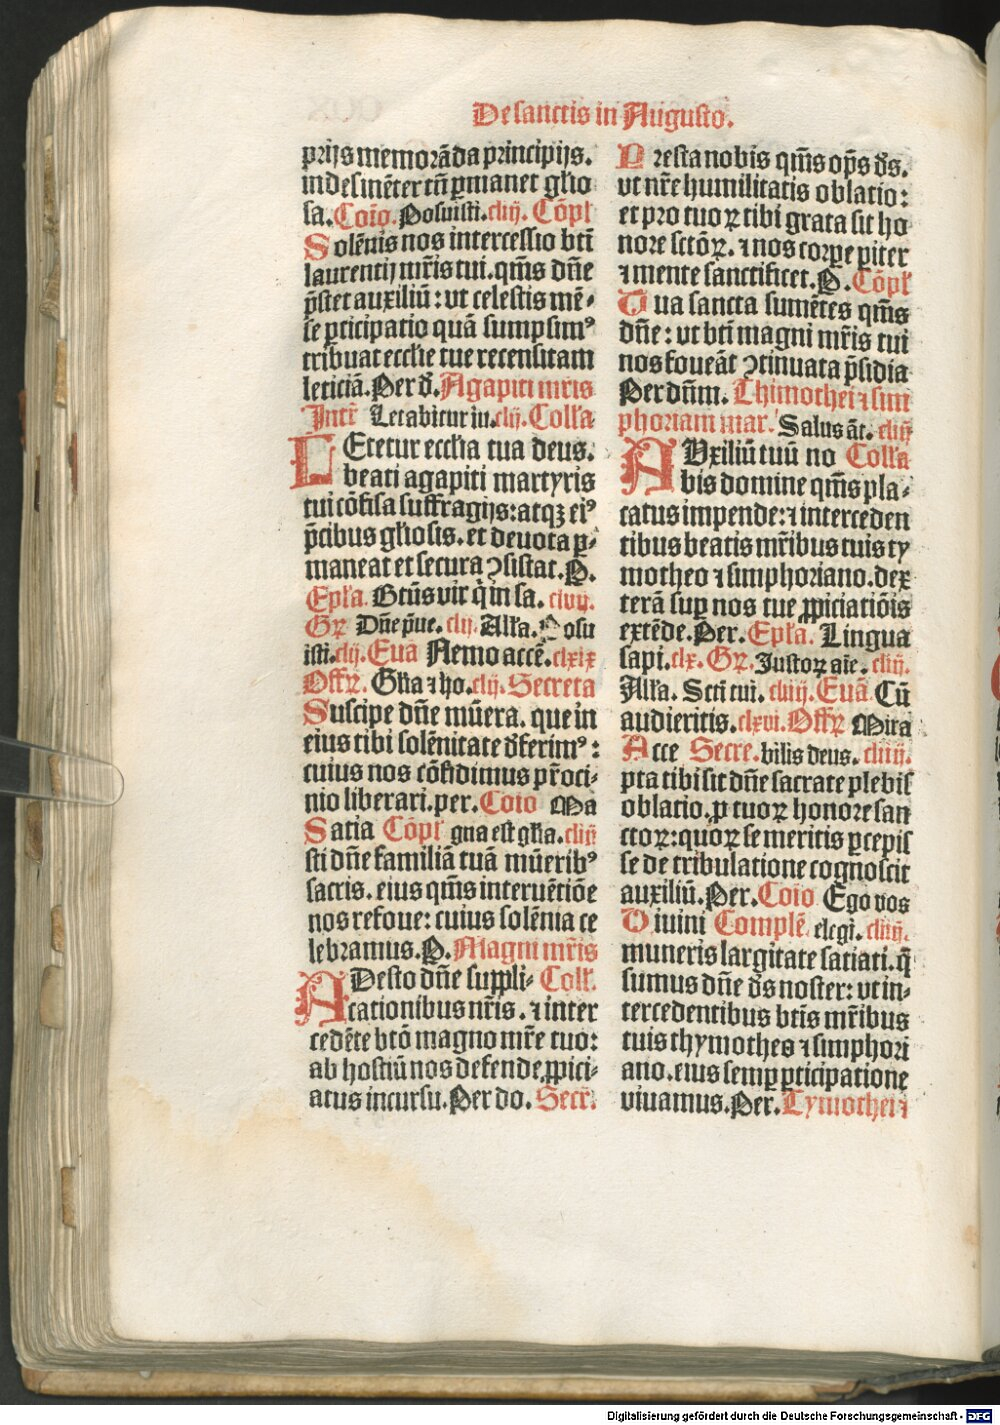 De sanctis in Augusto.
prijs memorāda principijs.
indesinēter tñ ꝑmanet gl̄io
sa. Coīo. Posuisti. cliij. Cōpl
Solēnis nos intercessio btī
laurentij mr̄is tui. qm̄s dn̄e
p̄stet auxiliū: vt celestis mē⸗
se ꝑticipatio quā sumpsimꝰ
tribuat eccl̄ie tue recensitam
leticiā. Per d̄. Agapiti mr̄is
Intr̄ Letabitur iu. clij. Coll̄a
LEtetur eccl̄ia tua deus.
beati agapiti martyris
tui cōfisa suffragijs: atqꝫ eiꝰ
p̄cibus gl̄iosis. et deuota ꝑ⸗
maneat et secura ꝯsistat. P.
Epl̄a. Bt̄us vir q̇ in sa. clvij.
Gꝝ Dn̄e p̄ue. clij. All̄a. Posu
isti. clij. Euā Nemo accē. clxix
Offꝝ. Gl̄ia ⁊ ho. clij. Secreta
Suscipe dn̄e mūera. que in
eius tibi solēnitate d̄ferimꝰ:
cuius nos cōfidimus pr̄oci⸗
nio liberari. per. Coīo Ma
Satia Cōpl gna est gl̄ia. cliij
sti dn̄e familiā tuā mūeribꝰ
sacris. eius qm̄s interuētiōe
nos refoue: cuius solēnia ce
lebramus. P. Magni mr̄is
ADesto dn̄e suppli⸗ Coll̄.
cationibus nr̄is. ⁊ inter
cedēte btō magno mr̄e tuo:
ab hostiū nos defende ꝓpici⸗
atus incursu. Per do. Secr̄.
Presta nobis qm̄s op̄s d̄s.
vt nr̄e humilitatis oblatio:
et pro tuoꝝ tibi grata sit ho
nore sctōꝝ. ⁊ nos corꝑe ꝑiter
⁊ mente sanctificet. P. Cōpl̄
Tua sancta sumētes qm̄s
dn̄e: vt btī magni mr̄is tui
nos foueāt ꝯtinuata p̄sidia
Per dn̄m. Thimothei ⁊ sim
phoriani mar. Salus āt. cliij
AVxiliū tuū no Coll̄a
bis domine qm̄s pla⸗
catus impende: ⁊ interceden
tibus beatis mr̄ibus tuis ty
motheo ⁊ simphoriano. dex
terā suꝑ nos tue ꝓpiciatiōis
extēde. Per. Epl̄a. Lingua
sapi. clx. Gꝝ. Iustoꝝ aīe. cliij.
All̄a. Scti tui. cliiij. Euā Cū
audieritis. clxvi. Offꝝ Mira
Acce Secre. bilis deus. cliiij.
pta tibi sit dn̄e sacrate plebis
oblatio. ꝓ tuoꝝ honore san
ctoꝝ: quoꝝ se meritis ꝑcepis
se de tribulatione cognoscit
auxiliū. Per. Coīo Ego vos
Diuini Complē. elegi. cliiij.
muneris largitate satiati. q̄
sumus dn̄e d̄s noster: vt in⸗
tercedentibus btīs mr̄ibus
tuis thymotheo ⁊ simphori
ano. eius semꝑ ꝑticipatione
viuamus. Per. Tymothei ⁊
Digitalisierung gefördert durch die Deutsche Forschungsgemeinschaft - DFG